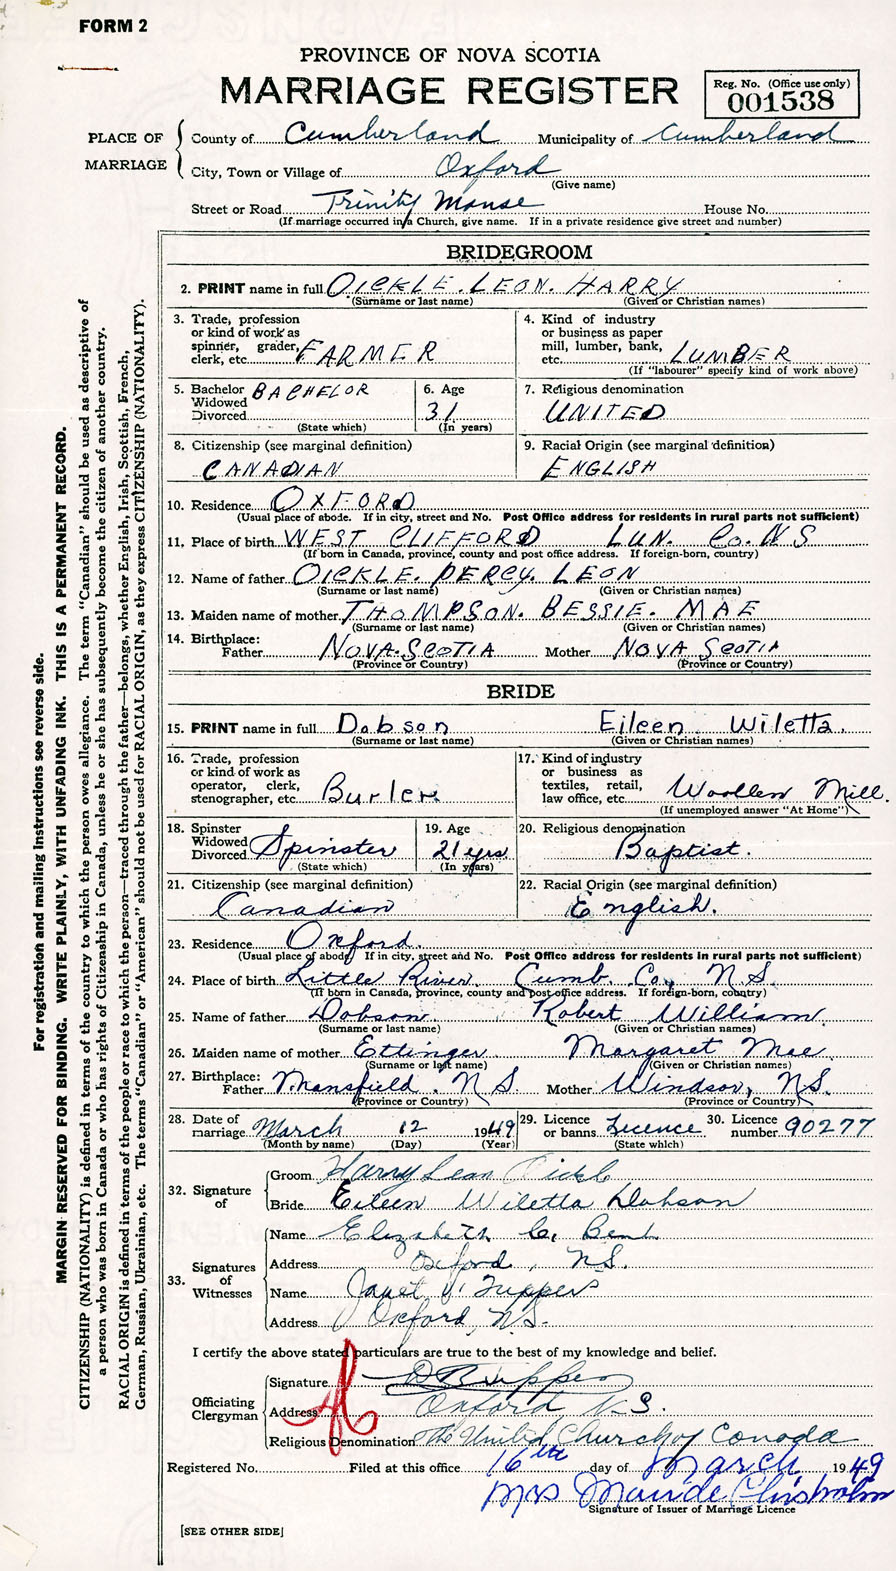 FORM 2
PROVINCE OF NOVA SCOTIA
MARRIAGE REGISTER
Reg. No. (Office use only)
001538
PLACE OF MARRIAGE
County of Cumberland Municipality of Cumberland
City, Town or Village of Oxford
(Give name)
Street or Road Trinity Manse House No.
(If marriage occurred in a Church, give name. If in a private residence give street and number)
BRIDEGROOM
2. PRINT name in full OICKLE. LEON. HARRY
(Surname or last name) (Given or Christian names)
3. Trade, profession or kind of work as spinner, grader, clerk, etc. FARMER
4. Kind of industry or business as paper mill, lumber, bank, etc. LUMBER
(If "labourer" specify kind of work above)
5. Bachelor Widowed Divorced BACHELOR
(State which)
6. Age 31
(In years)
7. Religious denomination UNITED
8. Citizenship (see marginal definition) CANADIAN
9. Racial Origin (see marginal definition) ENGLISH
10. Residence OXFORD
(Usual place of abode. If in city, street and No. Post Office address for residents in rural parts not sufficient)
11. Place of birth WEST CLIFFORD LUN. Co. N S
(If born in Canada, province, county and post office address. If foreign-born, country)
12. Name of father OICKLE. PERCY. LEON
(Surname or last name) (Given or Christian names)
13. Maiden name of mother THOMPSON. BESSIE. MAE
(Surname or last name) (Given or Christian names)
14. Birthplace: Father NOVA. SCOTIA Mother NOVA SCOTIA
(Province or Country) (Province or Country)
BRIDE
15. PRINT name in full Dobson Eileen Wiletta.
(Surname or last name) (Given or Christian names)
16. Trade, profession or kind of work as operator, clerk, stenographer, etc. Burler.
17. Kind of industry or business as textiles, retail, law office, etc. Woollen Mill.
(If unemployed answer "At Home")
18. Spinster Widowed Divorced Spinster
(State which)
19. Age 21 yrs
(In years)
20. Religious denomination Baptist.
21. Citizenship (see marginal definition) Canadian
22. Racial Origin (see marginal definition) English.
23. Residence Oxford.
(Usual place of abode. If in city, street and No. Post Office address for residents in rural parts not sufficient)
24. Place of birth Little River Cumb. Co., N.S.
(If born in Canada, province, county and post office address. If foreign-born, country)
25. Name of father Dobson Robert William.
(Surname or last name) (Given or Christian names)
26. Maiden name of mother Ettinger Margaret Mae
(Surname or last name) (Given or Christian names)
27. Birthplace: Father Mansfield. N S Mother Windsor, N.S.
(Province or Country) (Province or Country)
28. Date of marriage March 12 1949
(Month by name) (Day) (Year)
29. Licence or banns Licence
(State which)
30. Licence number 90277
32. Signature of
Groom Harry Leon Oickle
Bride Eileen Wiletta Dobson
33. Signatures of Witnesses
Name Elizabeth C. Bent
Address Oxford, N.S.
Name Janet V. Tuppers
Address Oxford, N.S.
I certify the above stated particulars are true to the best of my knowledge and belief.
Officiating Clergyman
Signature
Address Oxford N.S.
Religious Denomination The United Church of Canada
Registered No. Filed at this office 16th day of March 1949
Mrs Maude Chisholm
Signature of Issuer of Marriage Licence
[SEE OTHER SIDE]
For registration and mailing instructions see reverse side.
MARGIN RESERVED FOR BINDING. WRITE PLAINLY, WITH UNFADING INK. THIS IS A PERMANENT RECORD.
CITIZENSHIP (NATIONALITY) is defined in terms of the country to which the person owes allegiance. The term "Canadian" should be used as descriptive of
a person who was born in Canada or who has rights of Citizenship in Canada, unless he or she has subsequently become the citizen of another country.
RACIAL ORIGIN is defined in terms of the people or race to which the person—traced through the father—belongs, whether English, Irish, Scottish, French,
German, Russian, Ukrainian, etc. The terms "Canadian" or "American" should not be used for RACIAL ORIGIN, as they express CITIZENSHIP (NATIONALITY).